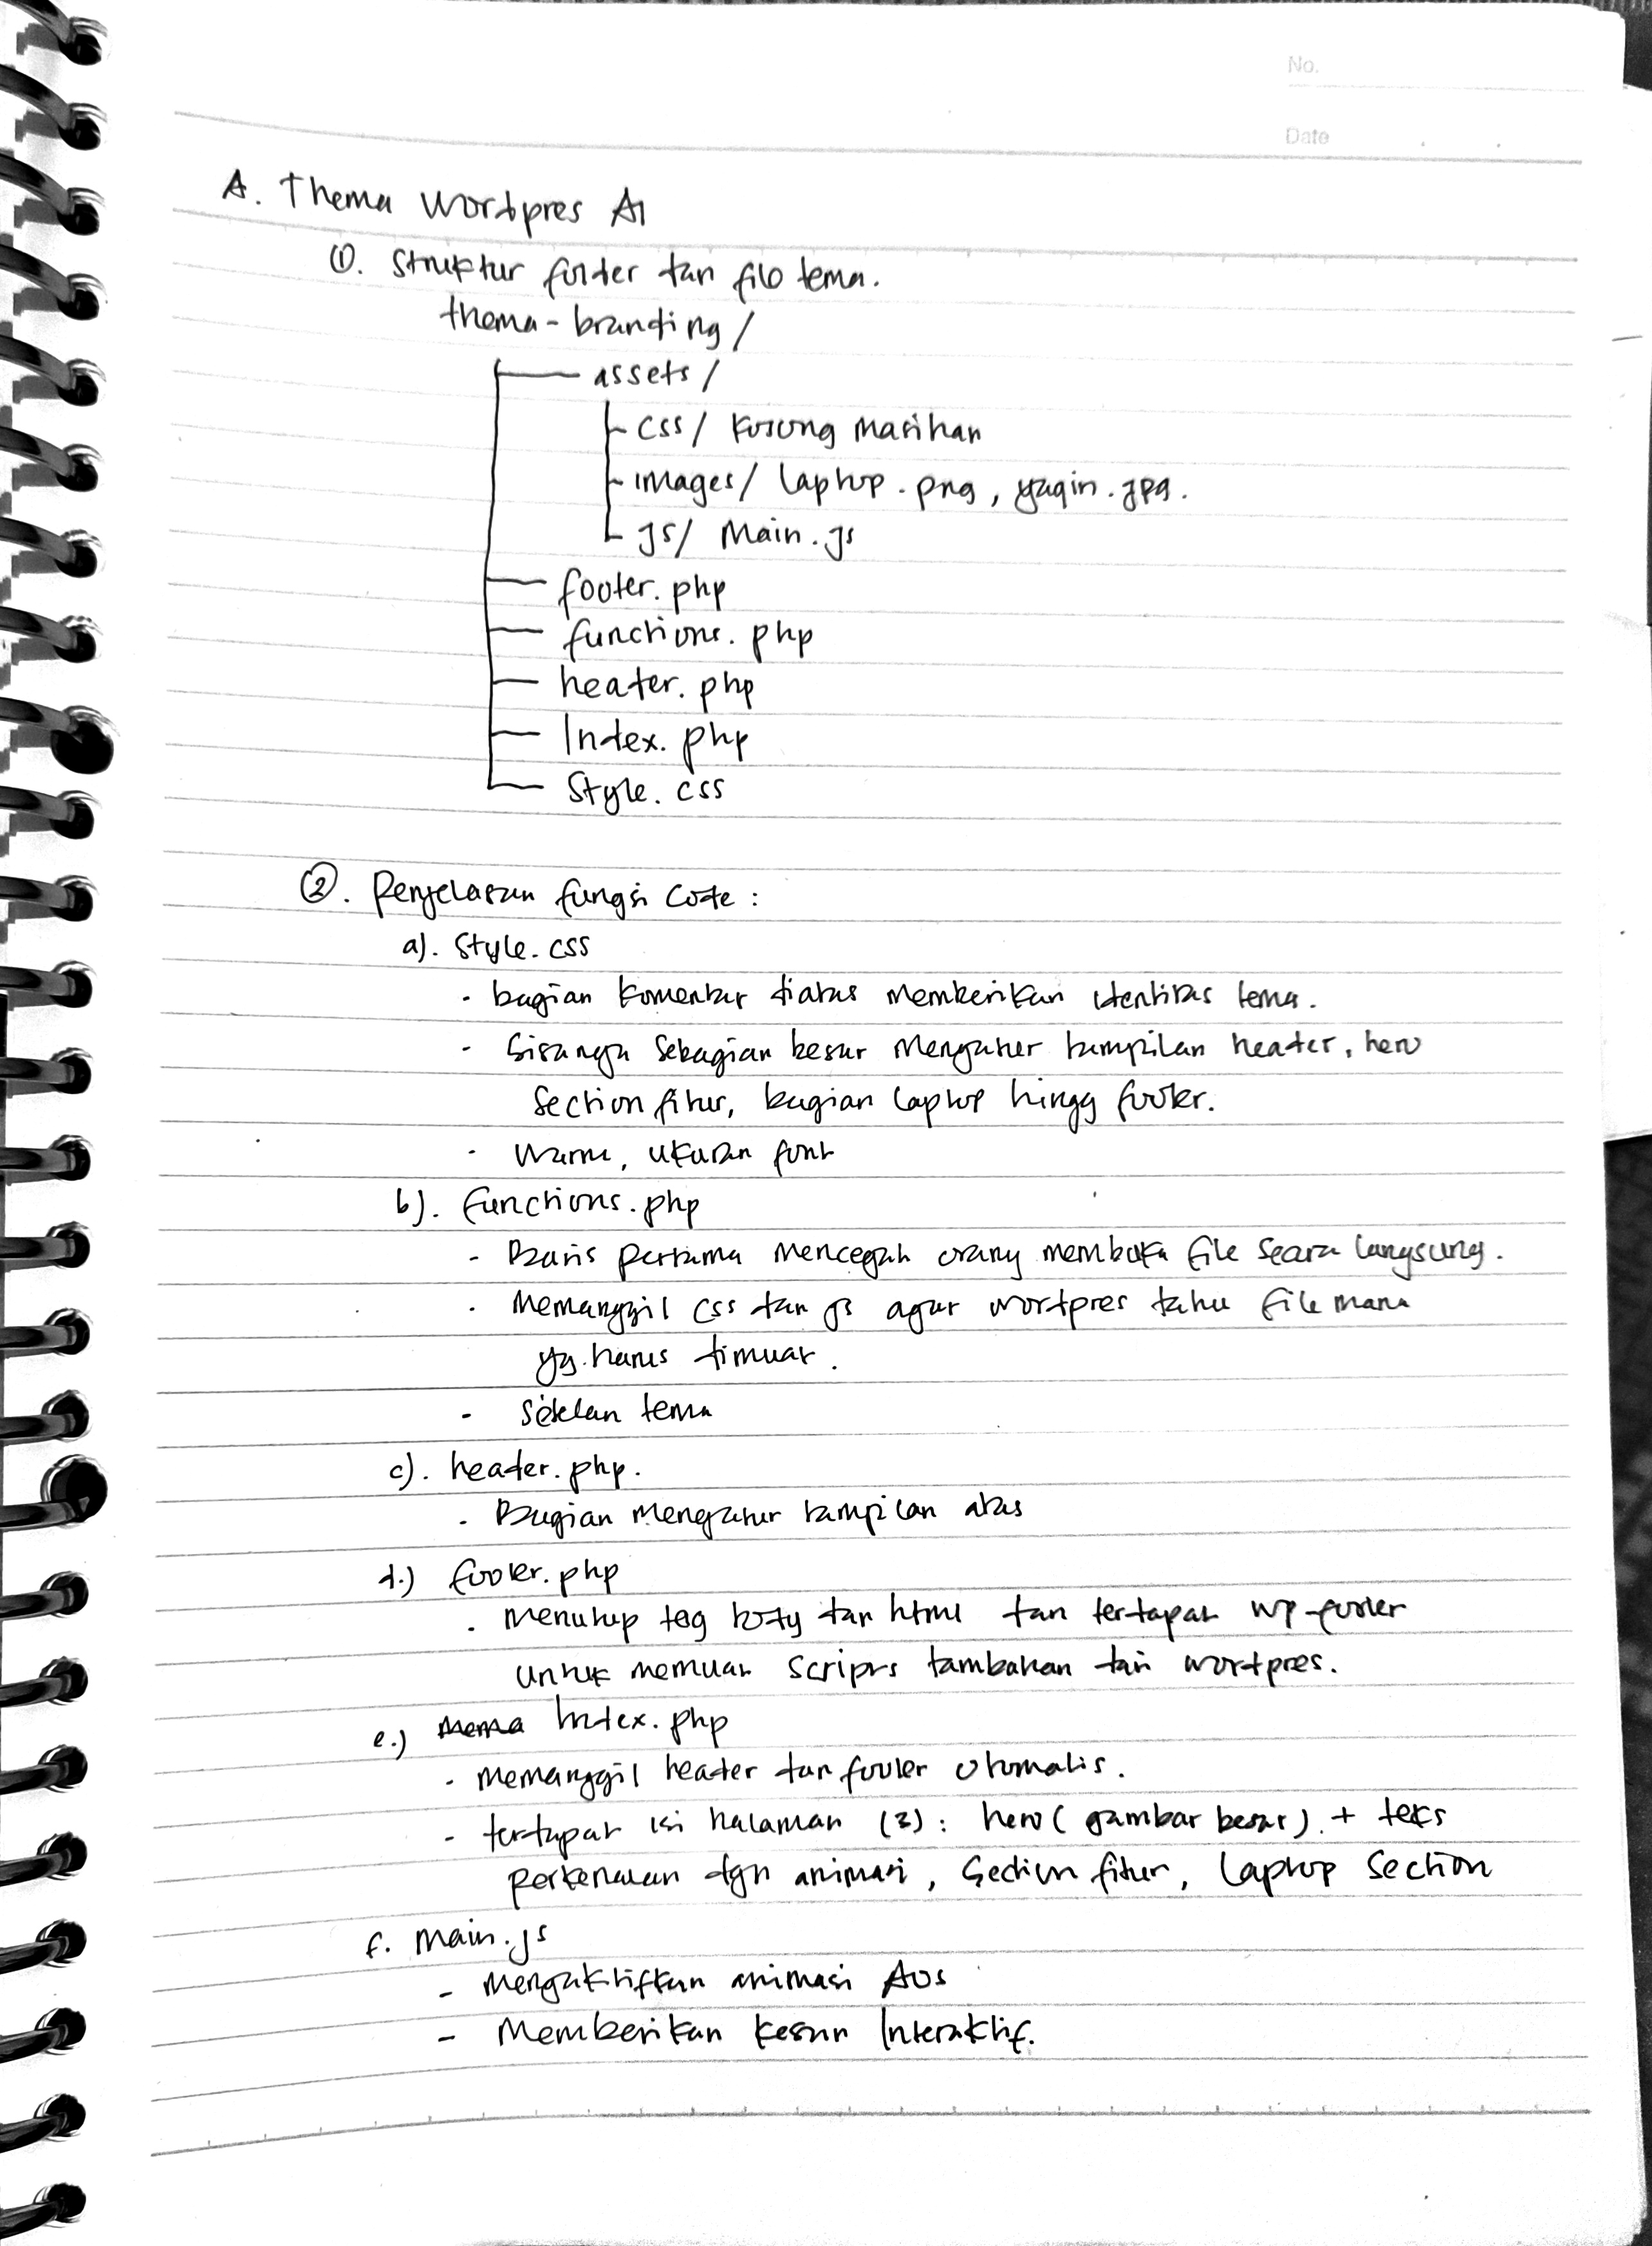 No.
Date
A. Thema Wordpres AI
①. Struktur folder dan file tema.
thema-branding/
assets/
css/ kosong masihan
images/ laptop.png, yaqin.jpg.
js/ Main.js
footer.php
functions.php
header.php
Index.php
Style.css
②. Penjelasan fungsi code :
a). Style.css
- bagian komentar diatas memberikan identitas tema.
- Sisanya Sebagian besar mengatur tampilan header, hero
Section fitur, bagian laptop hingg footer.
- Warna, ukuran font
b). functions.php
- Baris pertama mencegah orang membuka file secara langsung.
- Memanggil css dan js agar wordpres tahu file mana
yg. harus dimuat.
- Setelan tema
c). header.php.
- Bagian mengatur tampilan atas
d.) footer.php
- Menutup tag body dan html dan terdapat wp-footer
untuk memuat scripts tambahan dari wordpres.
e.) Mema Index.php
- Memanggil header dan footer otomatis.
- terdapat isi halaman (3) : hero ( gambar besar ). + teks
perkenalan dgn animasi, Section fitur, Laptop Section
f. Main.js
- Mengaktifkan animasi AOS
- Memberikan kesan Interaktif.